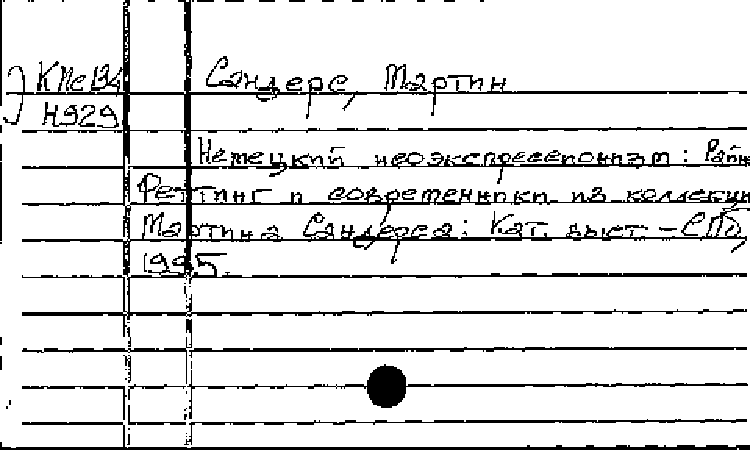 КПе134 Сандерс, Мартин
Н929
Немецкий неоэкспрессионизм: Райн
Реттинг и современники из коллекци
Мартина Сандерса: Кат. выст. - СПб,
1995.